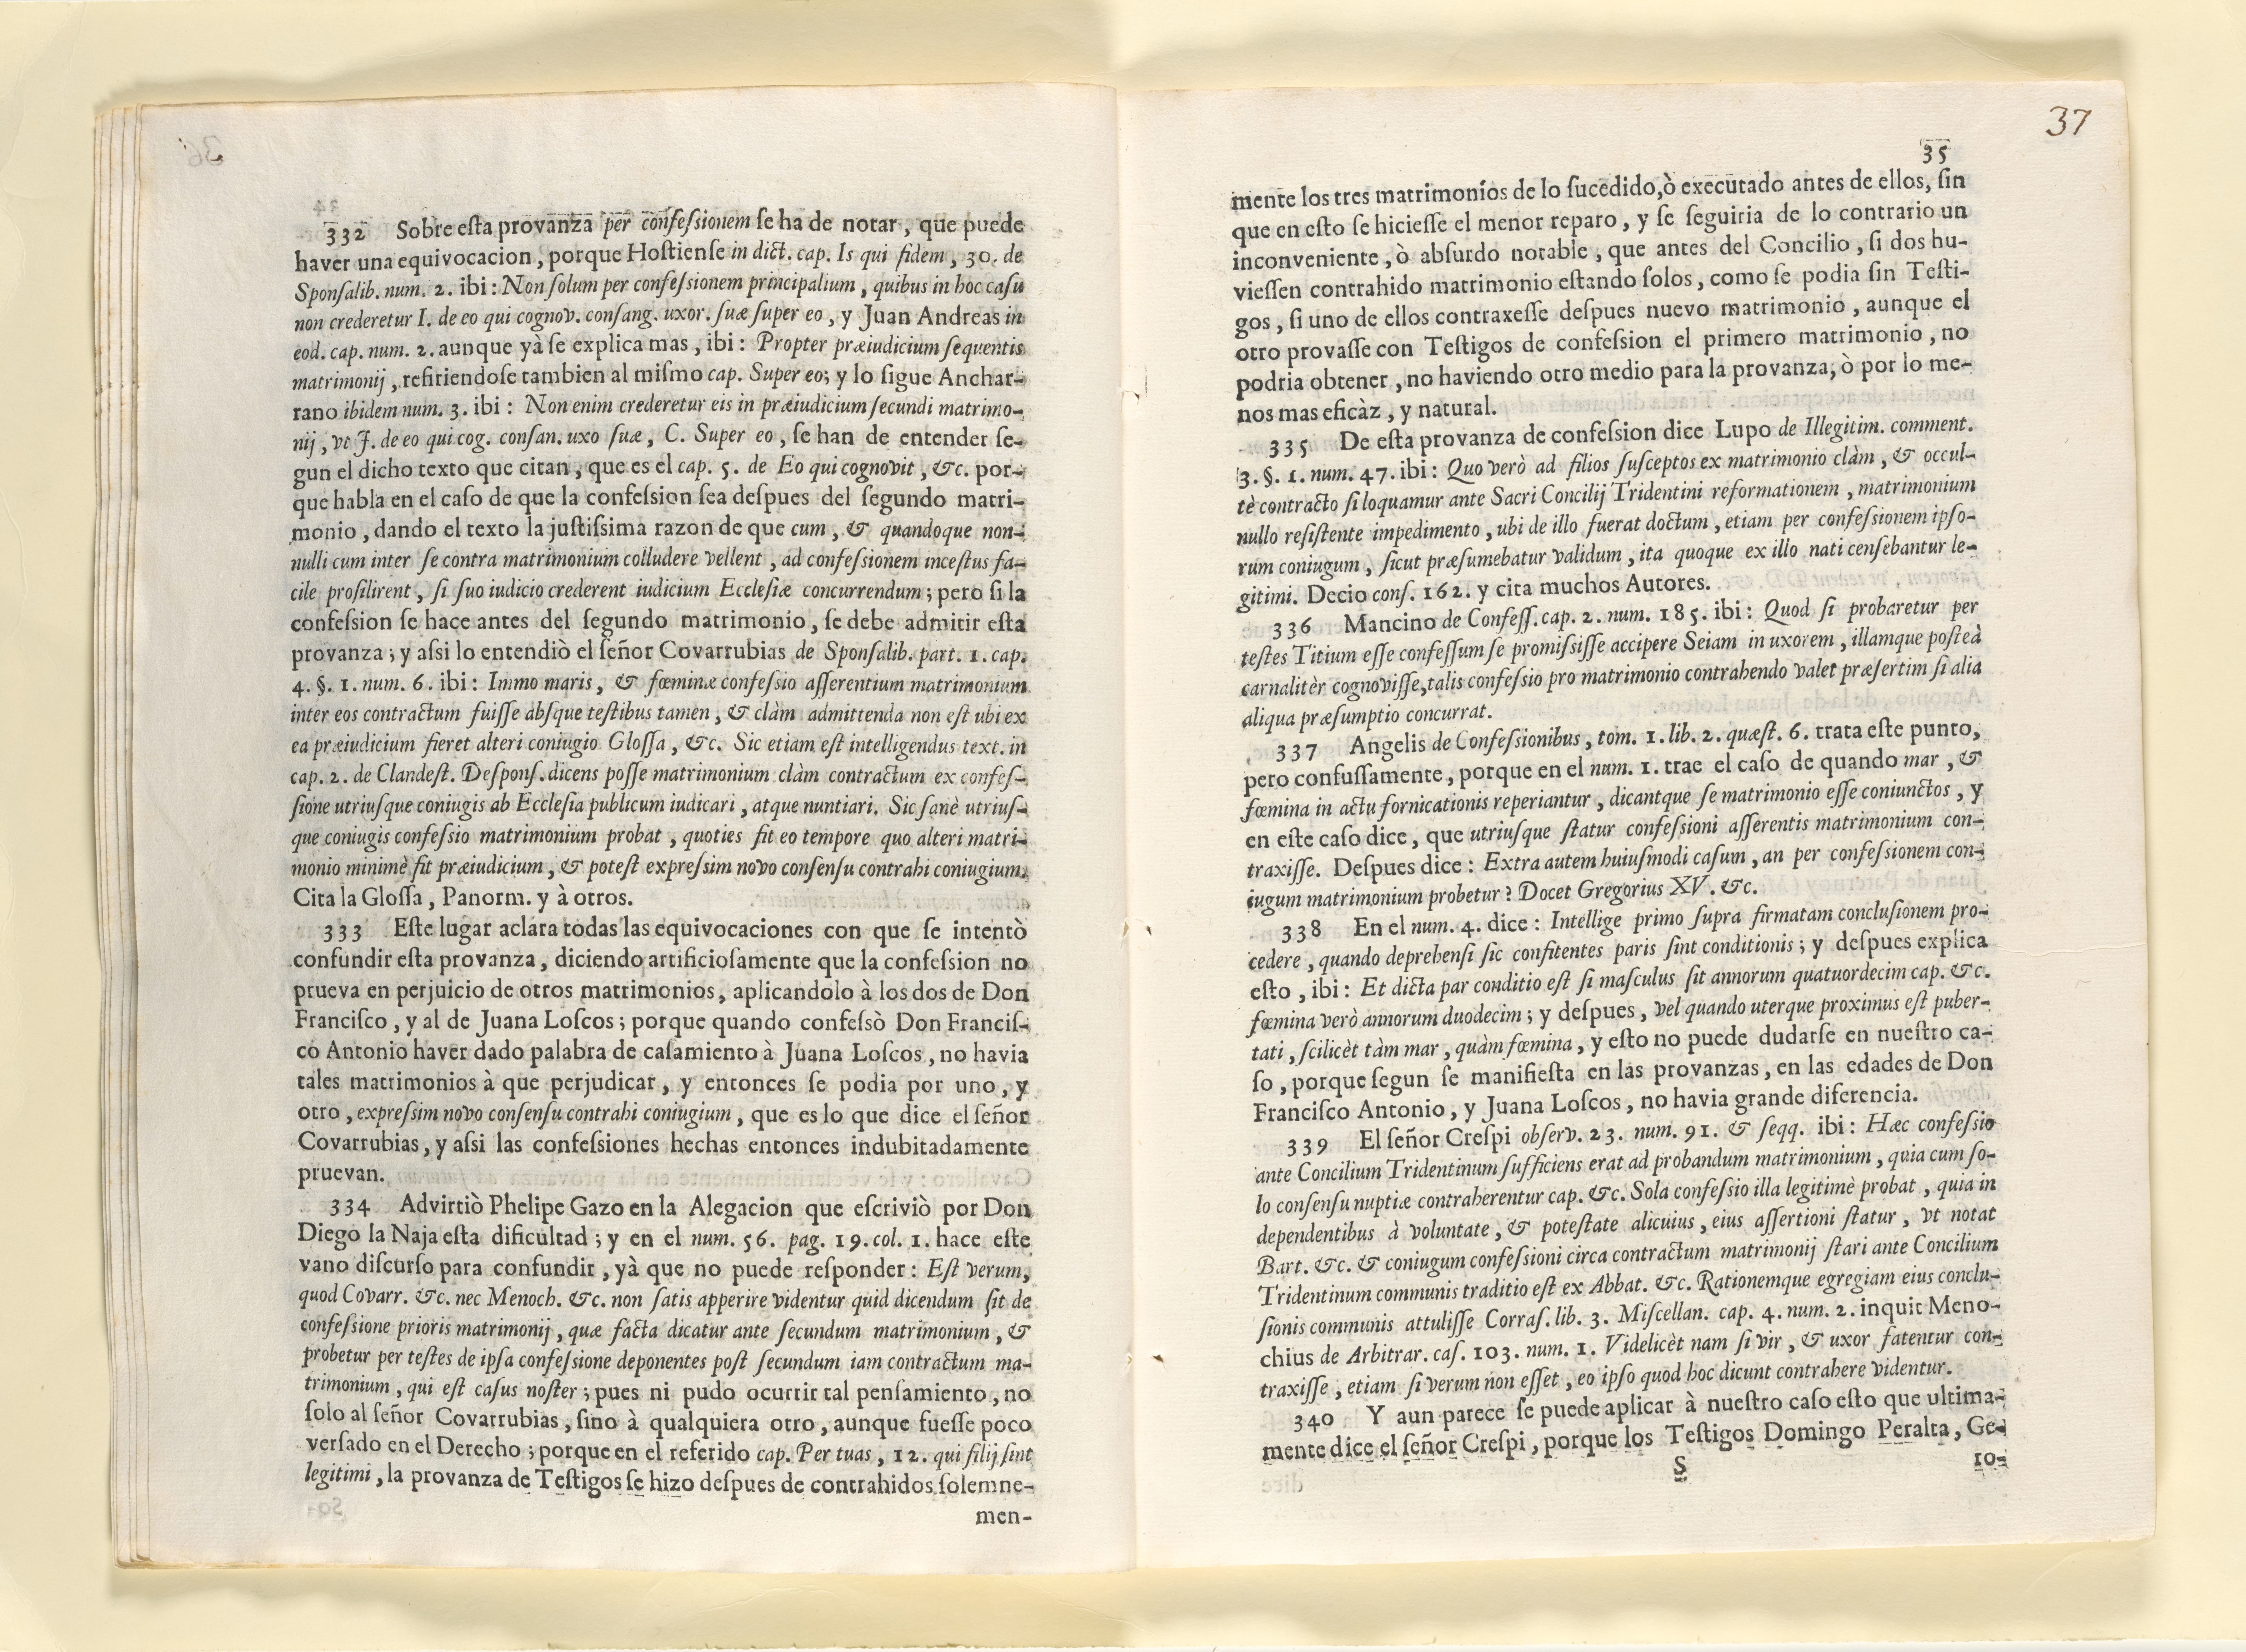 332 Sobre esta provanza per confessionem se ha de notar, que puede
haver una equivocacion, porque Hostiense in dict. cap. Is qui fidem, 30. de
Sponsalib. num. 2. ibi: Non solum per confessionem principalium, quibus in hoc casu
non crederetur I. de eo qui cognov. consang. uxor. suæ super eo, y Juan Andreas in
eod. cap. num. 2. aunque yà se explica mas, ibi: Propter præiudicium sequentis
matrimonij, refiriendose tambien al mismo cap. Super eo; y lo sigue Anchar-
rano ibidem num. 3. ibi: Non enim crederetur eis in præiudicium secundi matrimo-
nij, vt J. de eo qui cog. consan. uxo suæ, C. Super eo, se han de entender se-
gun el dicho texto que citan, que es el cap. 5. de Eo qui cognovit, &c. por-
que habla en el caso de que la confession sea despues del segundo matri-
monio, dando el texto la justissima razon de que cum, & quandoque non-
nulli cum inter se contra matrimonium colludere vellent, ad confessionem incestus fa-
cile prosilirent, si suo iudicio crederent iudicium Ecclesiæ concurrendum; pero si la
confession se hace antes del segundo matrimonio, se debe admitir esta
provanza; y assi lo entendiò el señor Covarrubias de Sponsalib. part. 1. cap.
4. §. 1. num. 6. ibi: Immo maris, & fœminæ confessio asserentium matrimonium
inter eos contractum fuisse absque testibus tamen, & clàm admittenda non est ubi ex
ea præiudicium fieret alteri coniugio Glossa, &c. Sic etiam est intelligendus text. in
cap. 2. de Clandest. Despons. dicens posse matrimonium clàm contractum ex confes-
sione utriusque coniugis ab Ecclesia publicum iudicari, atque nuntiari. Sic sanè utrius-
que coniugis confessio matrimonium probat, quoties fit eo tempore quo alteri matri-
monio minimè fit præiudicium, & potest expressim novo consensu contrahi coniugium.
Cita la Glossa, Panorm. y à otros.
333 Este lugar aclara todas las equivocaciones con que se intentò
confundir esta provanza, diciendo artificiosamente que la confession no
prueva en perjuicio de otros matrimonios, aplicandolo à los dos de Don
Francisco, y al de Juana Loscos; porque quando confessò Don Francis-
co Antonio haver dado palabra de casamiento à Juana Loscos, no havia
tales matrimonios à que perjudicar, y entonces se podia por uno, y
otro, expressim novo consensu contrahi coniugium, que es lo que dice el señor
Covarrubias, y assi las confessiones hechas entonces indubitadamente
pruevan.
334 Advirtiò Phelipe Gazo en la Alegacion que escriviò por Don
Diego la Naja esta dificultad; y en el num. 56. pag. 19. col. 1. hace este
vano discurso para confundir, yà que no puede responder: Est verum,
quod Covarr. &c. nec Menoch. &c. non satis apperire videntur quid dicendum sit de
confessione prioris matrimonij, quæ facta dicatur ante secundum matrimonium, &
probetur per testes de ipsa confessione deponentes post secundum iam contractum ma-
trimonium, qui est casus noster; pues ni pudo ocurrir tal pensamiento, no
solo al señor Covarrubias, sino à qualquiera otro, aunque fuesse poco
versado en el Derecho; porque en el referido cap. Per tuas, 12. qui filij sint
legitimi, la provanza de Testigos se hizo despues de contrahidos solemne-
men-
37
35
mente los tres matrimonios de lo sucedido, ò executado antes de ellos, sin
que en esto se hiciesse el menor reparo, y se seguiria de lo contrario un
inconveniente, ò absurdo notable, que antes del Concilio, si dos hu-
viessen contrahido matrimonio estando solos, como se podia sin Testi-
gos, si uno de ellos contraxesse despues nuevo matrimonio, aunque el
otro provasse con Testigos de confession el primero matrimonio, no
podria obtener, no haviendo otro medio para la provanza, ò por lo me-
nos mas eficàz, y natural.
335 De esta provanza de confession dice Lupo de Illegitim. comment.
3. §. 1. num. 47. ibi: Quo verò ad filios susceptos ex matrimonio clàm, & occul-
tè contracto si loquamur ante Sacri Concilij Tridentini reformationem, matrimonium
nullo resistente impedimento, ubi de illo fuerat doctum, etiam per confessionem ipso-
rum coniugum, sicut præsumebatur validum, ita quoque ex illo nati censebantur le-
gitimi. Decio cons. 162. y cita muchos Autores.
336 Mancino de Confess. cap. 2. num. 185. ibi: Quod si probaretur per
testes Titium esse confessum se promississe accipere Seiam in uxorem, illamque posteà
carnalitèr cognovisse, talis confessio pro matrimonio contrahendo valet præsertim si alia
aliqua præsumptio concurrat.
337 Angelis de Confessionibus, tom. 1. lib. 2. quæst. 6. trata este punto,
pero confussamente, porque en el num. 1. trae el caso de quando mar, &
fœmina in actu fornicationis reperiantur, dicantque se matrimonio esse coniunctos, y
en este caso dice, que utriusque statur confessioni asserentis matrimonium con-
traxisse. Despues dice: Extra autem huiusmodi casum, an per confessionem con-
iugum matrimonium probetur? Docet Gregorius XV. &c.
338 En el num. 4. dice: Intellige primo supra firmatam conclusionem pro-
cedere, quando deprehensi sic confitentes paris sint conditionis; y despues explica
esto, ibi: Et dicta par conditio est si masculus sit annorum quatuordecim cap. &c.
fœmina verò annorum duodecim; y despues, vel quando uterque proximus est puber-
tati, scilicèt tàm mar, quàm fœmina, y esto no puede dudarse en nuestro ca-
so, porque segun se manifiesta en las provanzas, en las edades de Don
Francisco Antonio, y Juana Loscos, no havia grande diferencia.
339 El señor Crespi observ. 23. num. 91. & seqq. ibi: Hæc confessio
ante Concilium Tridentinum sufficiens erat ad probandum matrimonium, quia cum so-
lo consensu nuptiæ contraherentur cap. &c. Sola confessio illa legitimè probat, quia in
dependentibus à voluntate, & potestate alicuius, eius assertioni statur, vt notat
Bart. &c. & coniugum confessioni circa contractum matrimonij stari ante Concilium
Tridentinum communis traditio est ex Abbat. &c. Rationemque egregiam eius conclu-
sionis communis attulisse Corras. lib. 3. Miscellan. cap. 4. num. 2. inquit Meno-
chius de Arbitrar. cas. 103. num. 1. Videlicèt nam si vir, & uxor fatentur con-
traxisse, etiam si verum non esset, eo ipso quod hoc dicunt contrahere videntur.
340 Y aun parece se puede aplicar à nuestro caso esto que ultima-
mente dice el señor Crespi, porque los Testigos Domingo Peralta, Ge-
S
ro-